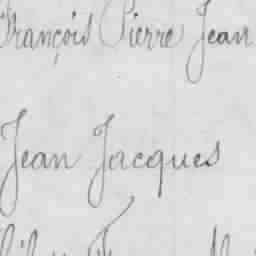 François Pierre Jean
Jean Jacques